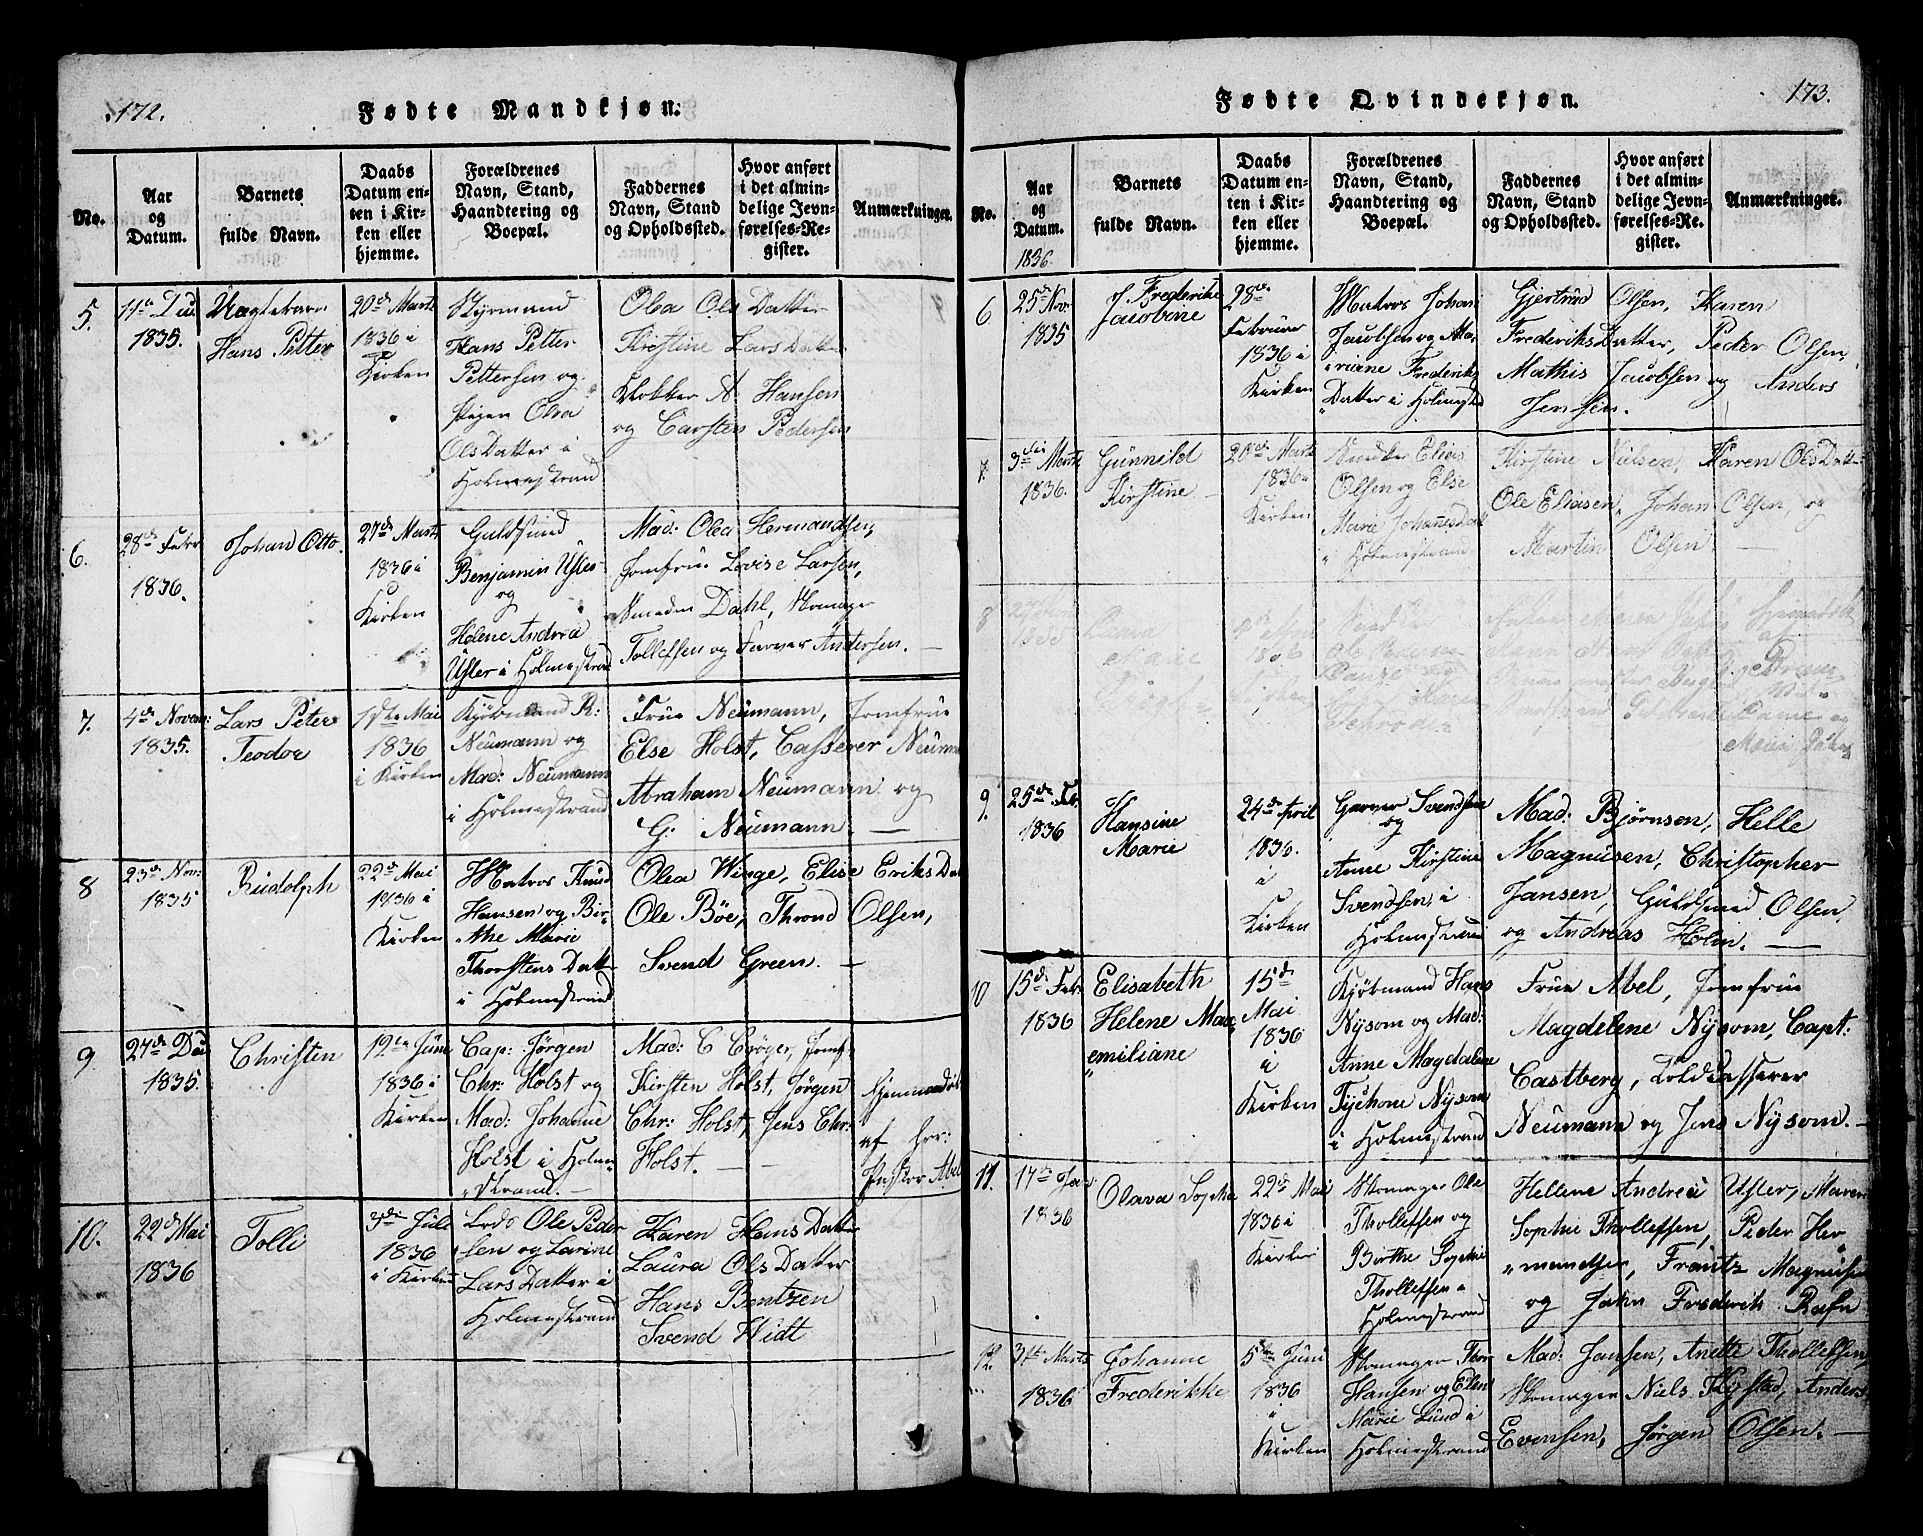 172.
Fødte Mandkjøn.
No.
Aar og Datum.
Barnets fulde Navn.
Daabs Datum enten i Kirken eller hjemme.
Forældrenes Navn, Stand, Haandtering og Boepæl.
Faddernes Navn, Stand og Opholdssted.
Hvor anført i det almindelige Jevnførelses-Register.
Anmærkninger.
5.
1835.
Hans Petter
20de Marts
1836 i
Kirken
Styrmand
Hans Petter
Pettersen og
Pigen Olea
OlsDatter i
Holmestrand
Olea Ols Datter
Kirstine Lars Datter
Klokker N. Hansen
og Carsten Pedersen
6.
28de Febr
1836.
Johan Otto.
27de Marts
1836 i
Kirken
Guldsmed
Benjamin Usler
og
Helene Andrea
Usler i Holmestrand
Mad: Olea Hermandsen,
Jomfrue Lovise Larsen,
Smeden Dahl, Skomager
Tollefsen og Farver Andersen. —
7.
4de Novem:
1835.
Lars Peter
Teodor
1ste Mai
1836
i Kirken
Kjøbmand R:
Neumann og
Mad: Neumann
i Holmestrand
Frue Neumann, Jomfrue
Else Holst, Casserer Neumann
Abraham Neumann og
G: Neumann —
8
23de Nov:
1835
Rudolph
22de Mai
1836 i
Kirken
Matros Knud
Hansen og Bir-
the Marie
Thorstens Datt
i Holmestrand
Olea Winge, Elise Eriks Dat
Ole Böe, Thrond Olsen,
Svend Green. —
9
27de Dec
1835.
Christen
12te Juni
1836 i
Kirken
Cap: Jørgen
Chr: Holst og
Mad: Johanne
Holst i Holme-
strand. —
Mad: C Crøger, Jomf
Kirsten Holst, Jørgen
Chr: Holst, Jens Chr:
Holst. — —
Hjemmedøbt
af Hr:
Pastor Abel
10.
22de Mai
1836
Tolli
3die Juli
1836
i Kirken
Lods Ole Peder
sen og Lavine
Lars Datter i
Holmestrand
Karen Hans Datter
Laura Ols Datter
Hans Bentzen
Svend Widt
173.
Fødte Qvindekjøn.
No.
Aar og Datum.
1836.
Barnets fulde Navn.
Daabs Datum enten i Kirken eller hjemme.
Forældrenes Navn, Stand, Haandtering og Boepæl.
Faddernes Navn, Stand og Opholdssted.
Hvor anført i det almindelige Jevnførelses-Register.
Anmærkninger.
6
25de Nov.
1835
Frederikke
Jacobine
28de
Februar
1836 i
Kirken
Matros Johan
Jacobsen og Ma-
riane Frederiks
Datter i Holmestrand
Gjertrud Olsen, Karen
FrederiksDatter, Peder Olsen
Mathis Jacobsen og Anders
Jensen.
7.
3die Marts
1836.
Gunnild
Kirstine —
20de Marts
1836 i
Kirken
Snedker Elias
Olsen og Else
Marie Johannesdatt
i Holmestrand
Kirstine Nielsen, Karen OlsDatter
Ole Eliasen, Johan Olsen, og
Martin Olsen. —
8
Marie
Schrøder
9.
25de Feb.
1836
Hansine
Marie
24de April
1836.
i
Kirken
Garver Svendsen
og
Anne Kirstine
Svendsen i
Holmestrand
Mad: Bjørnsen, Helle
Magnusen, Christopher
Jansen, Guldsmed Olsen,
og Andreas Holm. —
10
15de Feb.
1836
Elisabeth
Helene Max
emiliane
15de
Mai
1836
i
Kirken
Kjøbmand Hans
Nysom og Mad:
Anne Magdalene
Tychone Nysom
i Holmestrand
Frue Abel, Jomfrue
Magdelene Nysom, Capt:
Castberg, Toldcasserer
Neumann og Jens Nysom. —
11.
17de Jan
1836
Olava Sophie
22de Mai
1836 i
Kirken
Skomager Ole
Thollefsen og
Birthe Sophie
Thollefsen i
Holmestrand
Hellene Andrea Usler, Maren
Sophie Thollefsen, Peder Her
mandsen, Frantz Magnusen
og John Frederik Rafn
12.
31te Marts
1836
Johanne
Frederikke
5de Juni
1836
i
Kirken
Skomager Thor
Hansen og Elen
Marie Lund i
Holmestrand
Mad: Jansen, Anette Thollefsen
Skomager Niels Flystad, Anders
Evensen, Jørgen Olsen. —